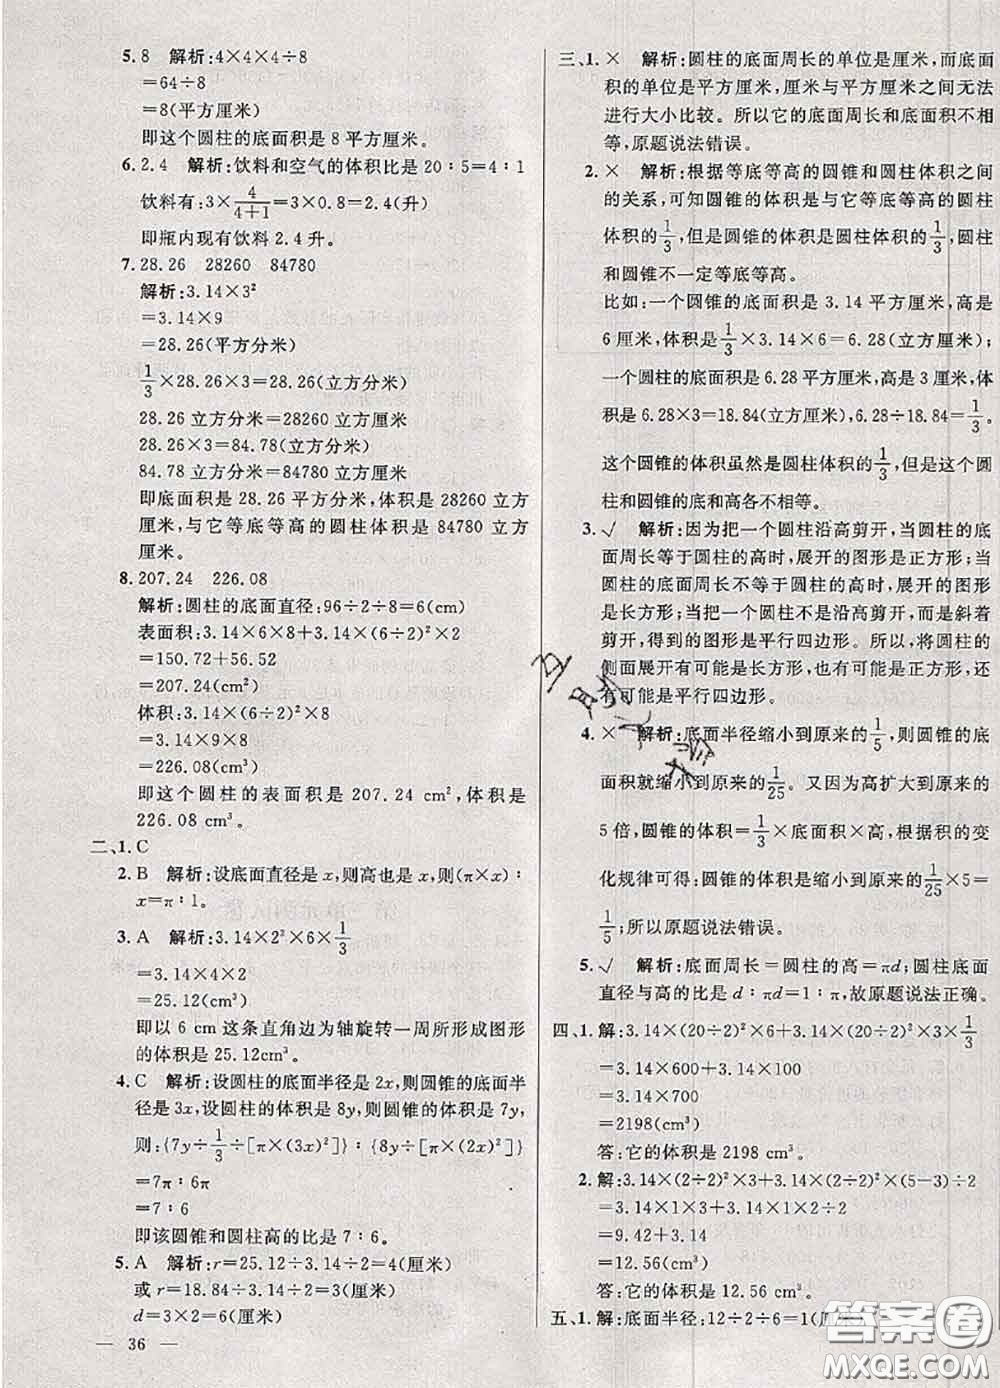 5.8 解析:4×4×4÷8
=64÷8
=8(平方厘米)
即这个圆柱的底面积是 8 平方厘米。
6.2.4 解析:饮料和空气的体积比是 20∶5=4∶1
饮料有:3×4/(4+1)=3×0.8=2.4(升)
即瓶内现有饮料 2.4 升。
7.28.26 28260 84780
解析:3.14×3²
=3.14×9
=28.26(平方分米)
1/3×28.26×3=28.26(立方分米)
28.26 立方分米=28260 立方厘米
28.26×3=84.78(立方分米)
84.78 立方分米=84780 立方厘米
即底面积是 28.26 平方分米,体积是 28260 立方
厘米,与它等底等高的圆柱体积是 84780 立方
厘米。
8.207.24 226.08
解析:圆柱的底面直径:96÷2÷8=6(cm)
表面积:3.14×6×8+3.14×(6÷2)²×2
=150.72+56.52
=207.24(cm²)
体积:3.14×(6÷2)²×8
=3.14×9×8
=226.08(cm³)
即这个圆柱的表面积是 207.24 cm²,体积是
226.08 cm³。
二、1.C
2.B 解析:设底面直径是 x,则高也是 x,则(π×x)∶
x=π∶1。
3.A 解析:3.14×2²×6×1/3
=3.14×4×2
=25.12(cm³)
即以 6 cm 这条直角边为轴旋转一周所形成图形
的体积是 25.12cm³。
4.C 解析:设圆柱的底面半径是 2x,则圆锥的底面半
径是 3x,设圆柱的体积是 8y,则圆锥的体积是 7y,
则:{7y÷1/3÷[π×(3x)²]}∶{8y÷[π×(2x)²]}
=7π∶6π
=7∶6
即该圆锥和圆柱高的比是 7∶6。
5.A 解析:r=25.12÷3.14÷2=4(厘米)
或 r=18.84÷3.14÷2=3(厘米)
d=3×2=6(厘米)
— 36 —
三、1.× 解析:圆柱的底面周长的单位是厘米,而底面
积的单位是平方厘米,厘米与平方厘米之间无法
进行大小比较。所以它的底面周长和底面积不相
等,原题说法错误。
2.× 解析:根据等底等高的圆锥和圆柱体积之间
的关系,可知圆锥的体积是与它等底等高的圆柱
体积的1/3,但是圆锥的体积是圆柱体积的1/3,圆柱
和圆锥不一定等底等高。
比如:一个圆锥的底面积是 3.14 平方厘米,高是
6 厘米,体积是1/3×3.14×6=6.28(立方厘米);
一个圆柱的底面积是 6.28 平方厘米,高是 3 厘米,体
积是 6.28×3=18.84(立方厘米),6.28÷18.84=1/3。
这个圆锥的体积虽然是圆柱体积的1/3,但是这个圆
柱和圆锥的底和高各不相等。
3.√ 解析:因为把一个圆柱沿高剪开,当圆柱的底
面周长等于圆柱的高时,展开的图形是正方形;当
圆柱的底面周长不等于圆柱的高时,展开的图形
是长方形;当把一个圆柱不是沿高剪开,而是斜着
剪开,得到的图形是平行四边形。所以,将圆柱的
侧面展开有可能是长方形,也有可能是正方形,还
有可能是平行四边形。
4.× 解析:底面半径缩小到原来的1/5,则圆锥的底
面积就缩小到原来的1/25。又因为高扩大到原来的
5 倍,圆锥的体积=1/3×底面积×高,根据积的变
化规律可得:圆锥的体积是缩小到原来的1/25×5=
1/5;所以原题说法错误。
5.√ 解析:底面周长=圆柱的高=πd;圆柱底面
直径与高的比是 d∶πd=1∶π,故原题说法正确。
四、1.解:3.14×(20÷2)²×6+3.14×(20÷2)²×3×1/3
=3.14×600+3.14×100
=3.14×700
=2198(cm³)
答:它的体积是 2198 cm³。
2.解:3.14×(2÷2)²×3+3.14×(2÷2)²×(5−3)÷2
=3.14×1×3+3.14×1×2÷2
=9.42+3.14
=12.56(cm³)
答:它的体积是 12.56 cm³。
五、1.解:底面半径:12÷2÷6=1(厘米)
答案圈
MXQE.COM